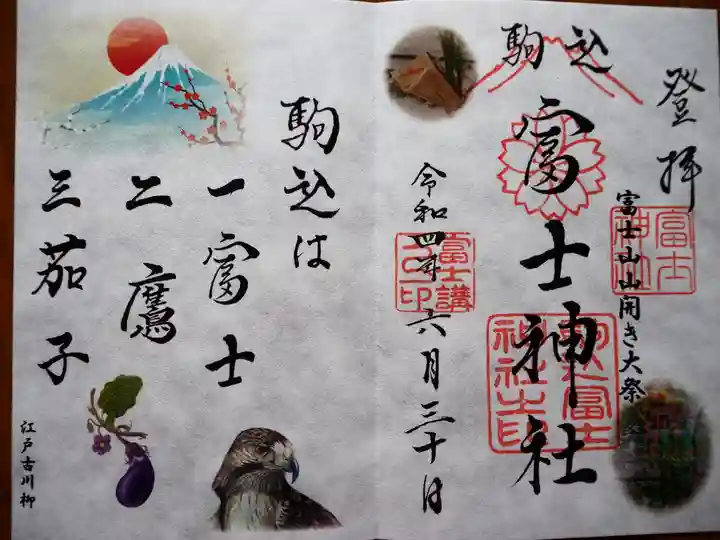 登拝
富士山山開き大祭
富士
神社
駒込
富士神社
駒込富士
神社之印
令和四年六月三十日
富士講
之印
駒込は
一富士
二鷹
三茄子
江戸古川柳